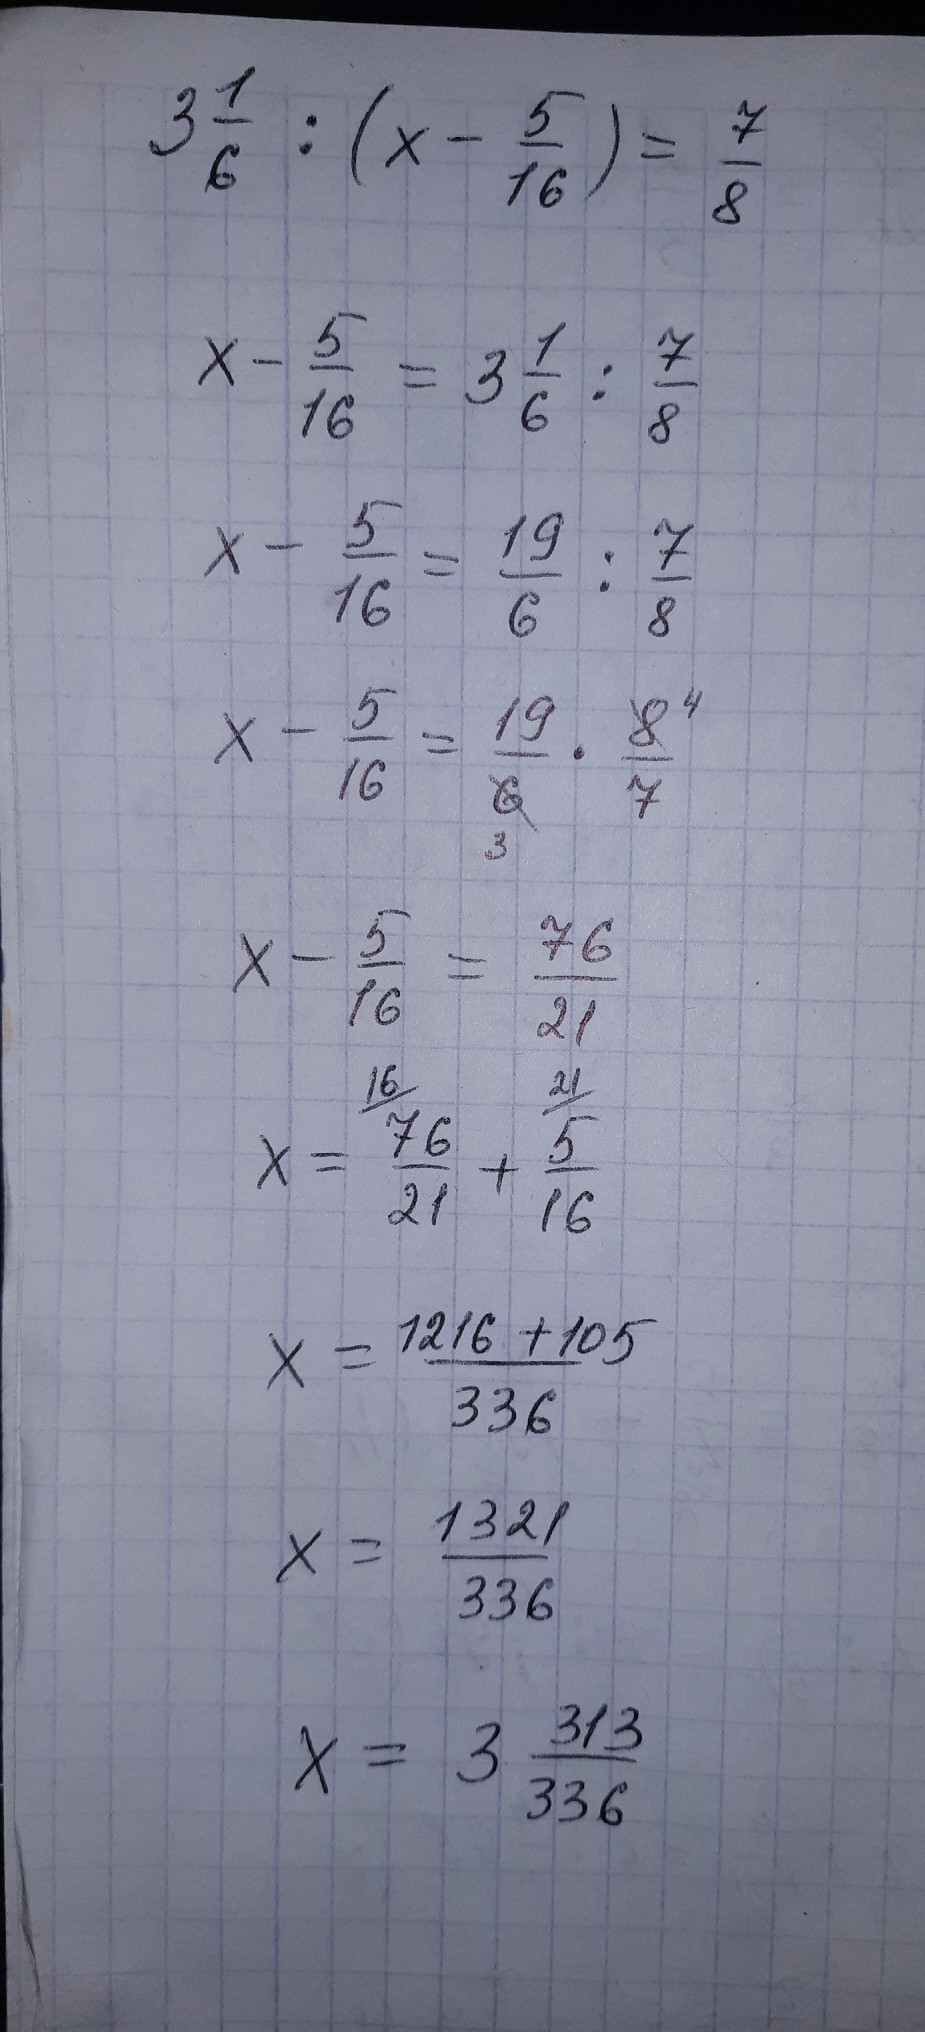 3 1/6 : (x - 5/16) = 7/8
x - 5/16 = 3 1/6 : 7/8
x - 5/16 = 19/6 : 7/8
x - 5/16 = 19/6 · 8/7 4
3
x - 5/16 = 76/21
16/ 21/
x = 76/21 + 5/16
x = 1216 + 105/336
x = 1321/336
x = 3 313/336